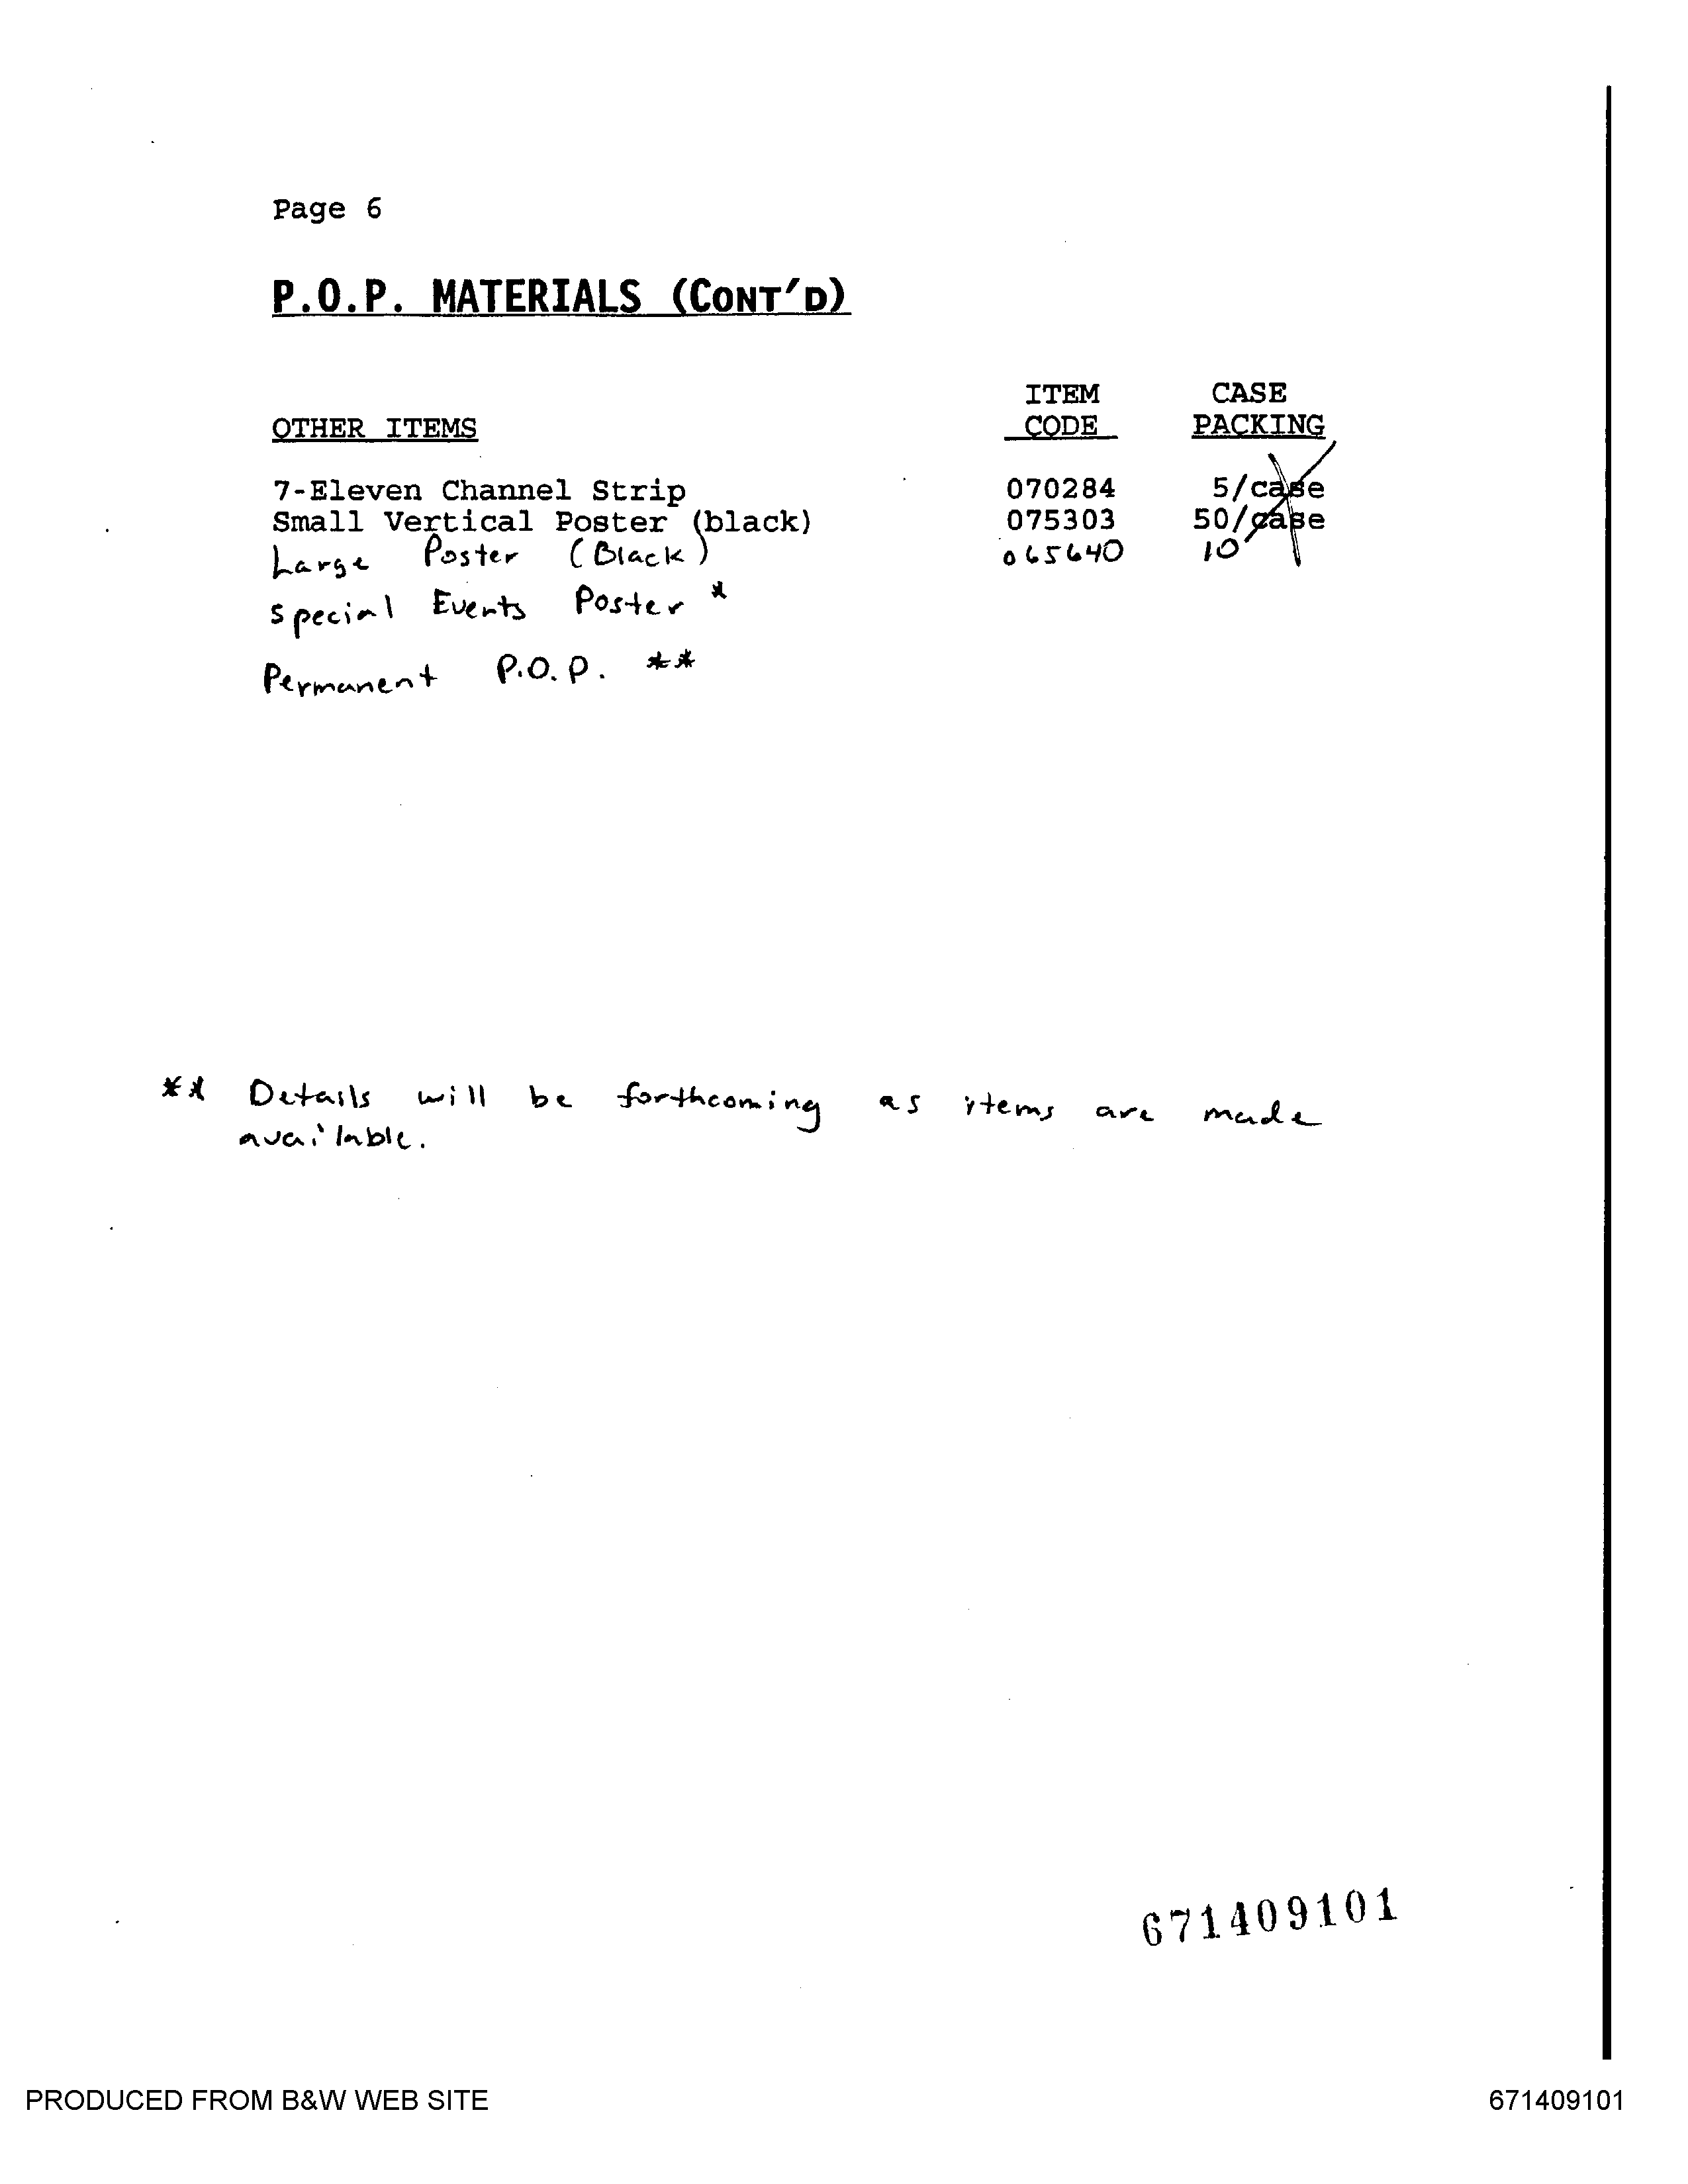 Page 6
P.O.P. MATERIALS (CONT'D)
ITEM CASE
OTHER ITEMS CODE PACKING
7-Eleven Channel Strip 070284 5/case
Small Vertical Poster (black) 075303 50/case
Large Poster (Black) 065640 10
Special Events Poster *
Permanent P.O.P. **
** Details will be forthcoming as items are made
available.
671409101
PRODUCED FROM B&W WEB SITE 671409101